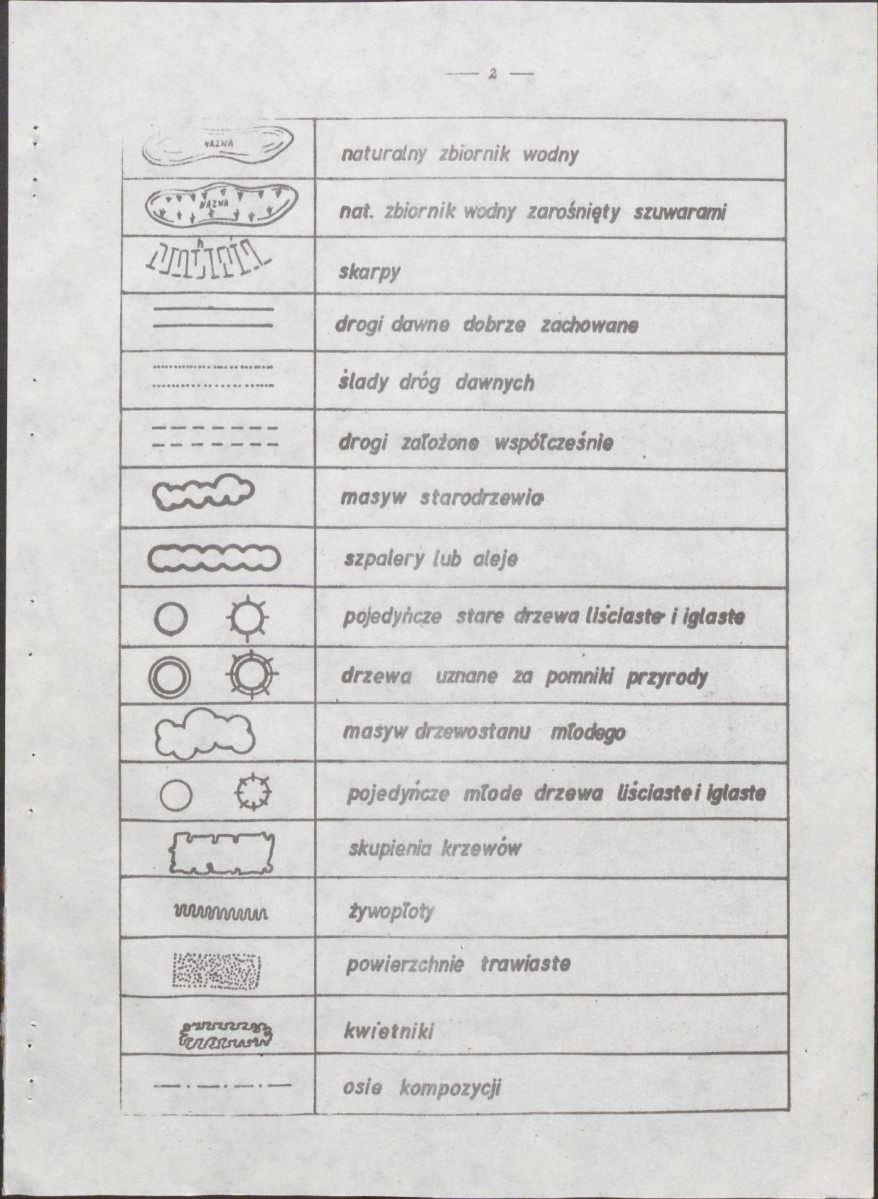 — 2 —
NAZWA
naturalny zbiornik wodny
NAZWA
nat. zbiornik wodny zarośnięty szuwarami
h
skarpy
drogi dawne dobrze zachowane
ślady dróg dawnych
drogi założone współcześnie
masyw starodrzewia
szpalery lub aleje
pojedyńcze stare drzewa liściaste i iglaste
drzewa uznane za pomniki przyrody
masyw drzewostanu młodego
pojedyńcze młode drzewa liściaste i iglaste
skupienia krzewów
żywopłoty
powierzchnie trawiaste
kwietniki
osie kompozycji